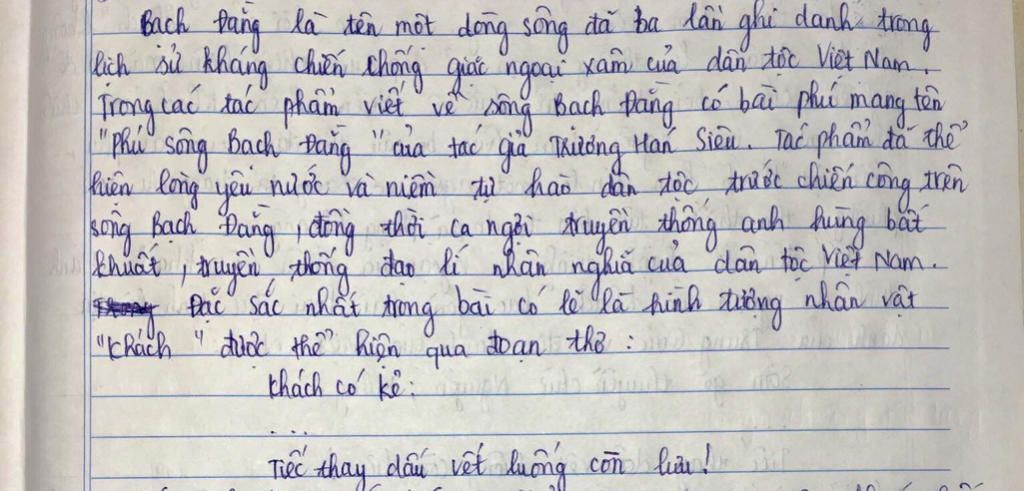 Bạch Đằng là tên một dòng sông đã ba lần ghi danh trong
lịch sử kháng chiến chống giặc ngoại xâm của dân tộc Việt Nam.
Trong các tác phẩm viết về sông Bạch Đằng có bài phú mang tên
"Phú sông Bạch Đằng" của tác giả Trương Hán Siêu. Tác phẩm đã thể
hiện lòng yêu nước và niềm tự hào dân tộc trước chiến công trên
sông Bạch Đằng, đồng thời ca ngợi truyền thống anh hùng bất
khuất, truyền thống đạo lí nhân nghĩa của dân tộc Việt Nam.
Đặc sắc nhất trong bài có lẽ là hình tượng nhân vật
"Khách" được thể hiện qua đoạn thơ:
Khách có kẻ:
...
Tiếc thay dấu vết luống còn lưu!